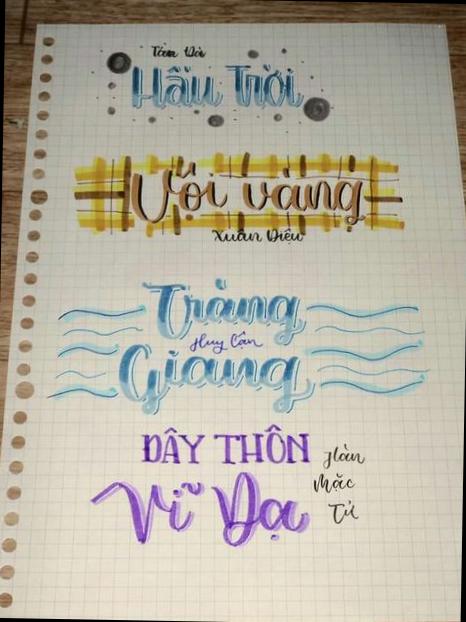 Tản Đà
Hầu Trời
Vội vàng
Xuân Diệu
Tràng
Huy Cận
Giang
ĐÂY THÔN
Vĩ Dạ
Hàn
Mặc
Tử